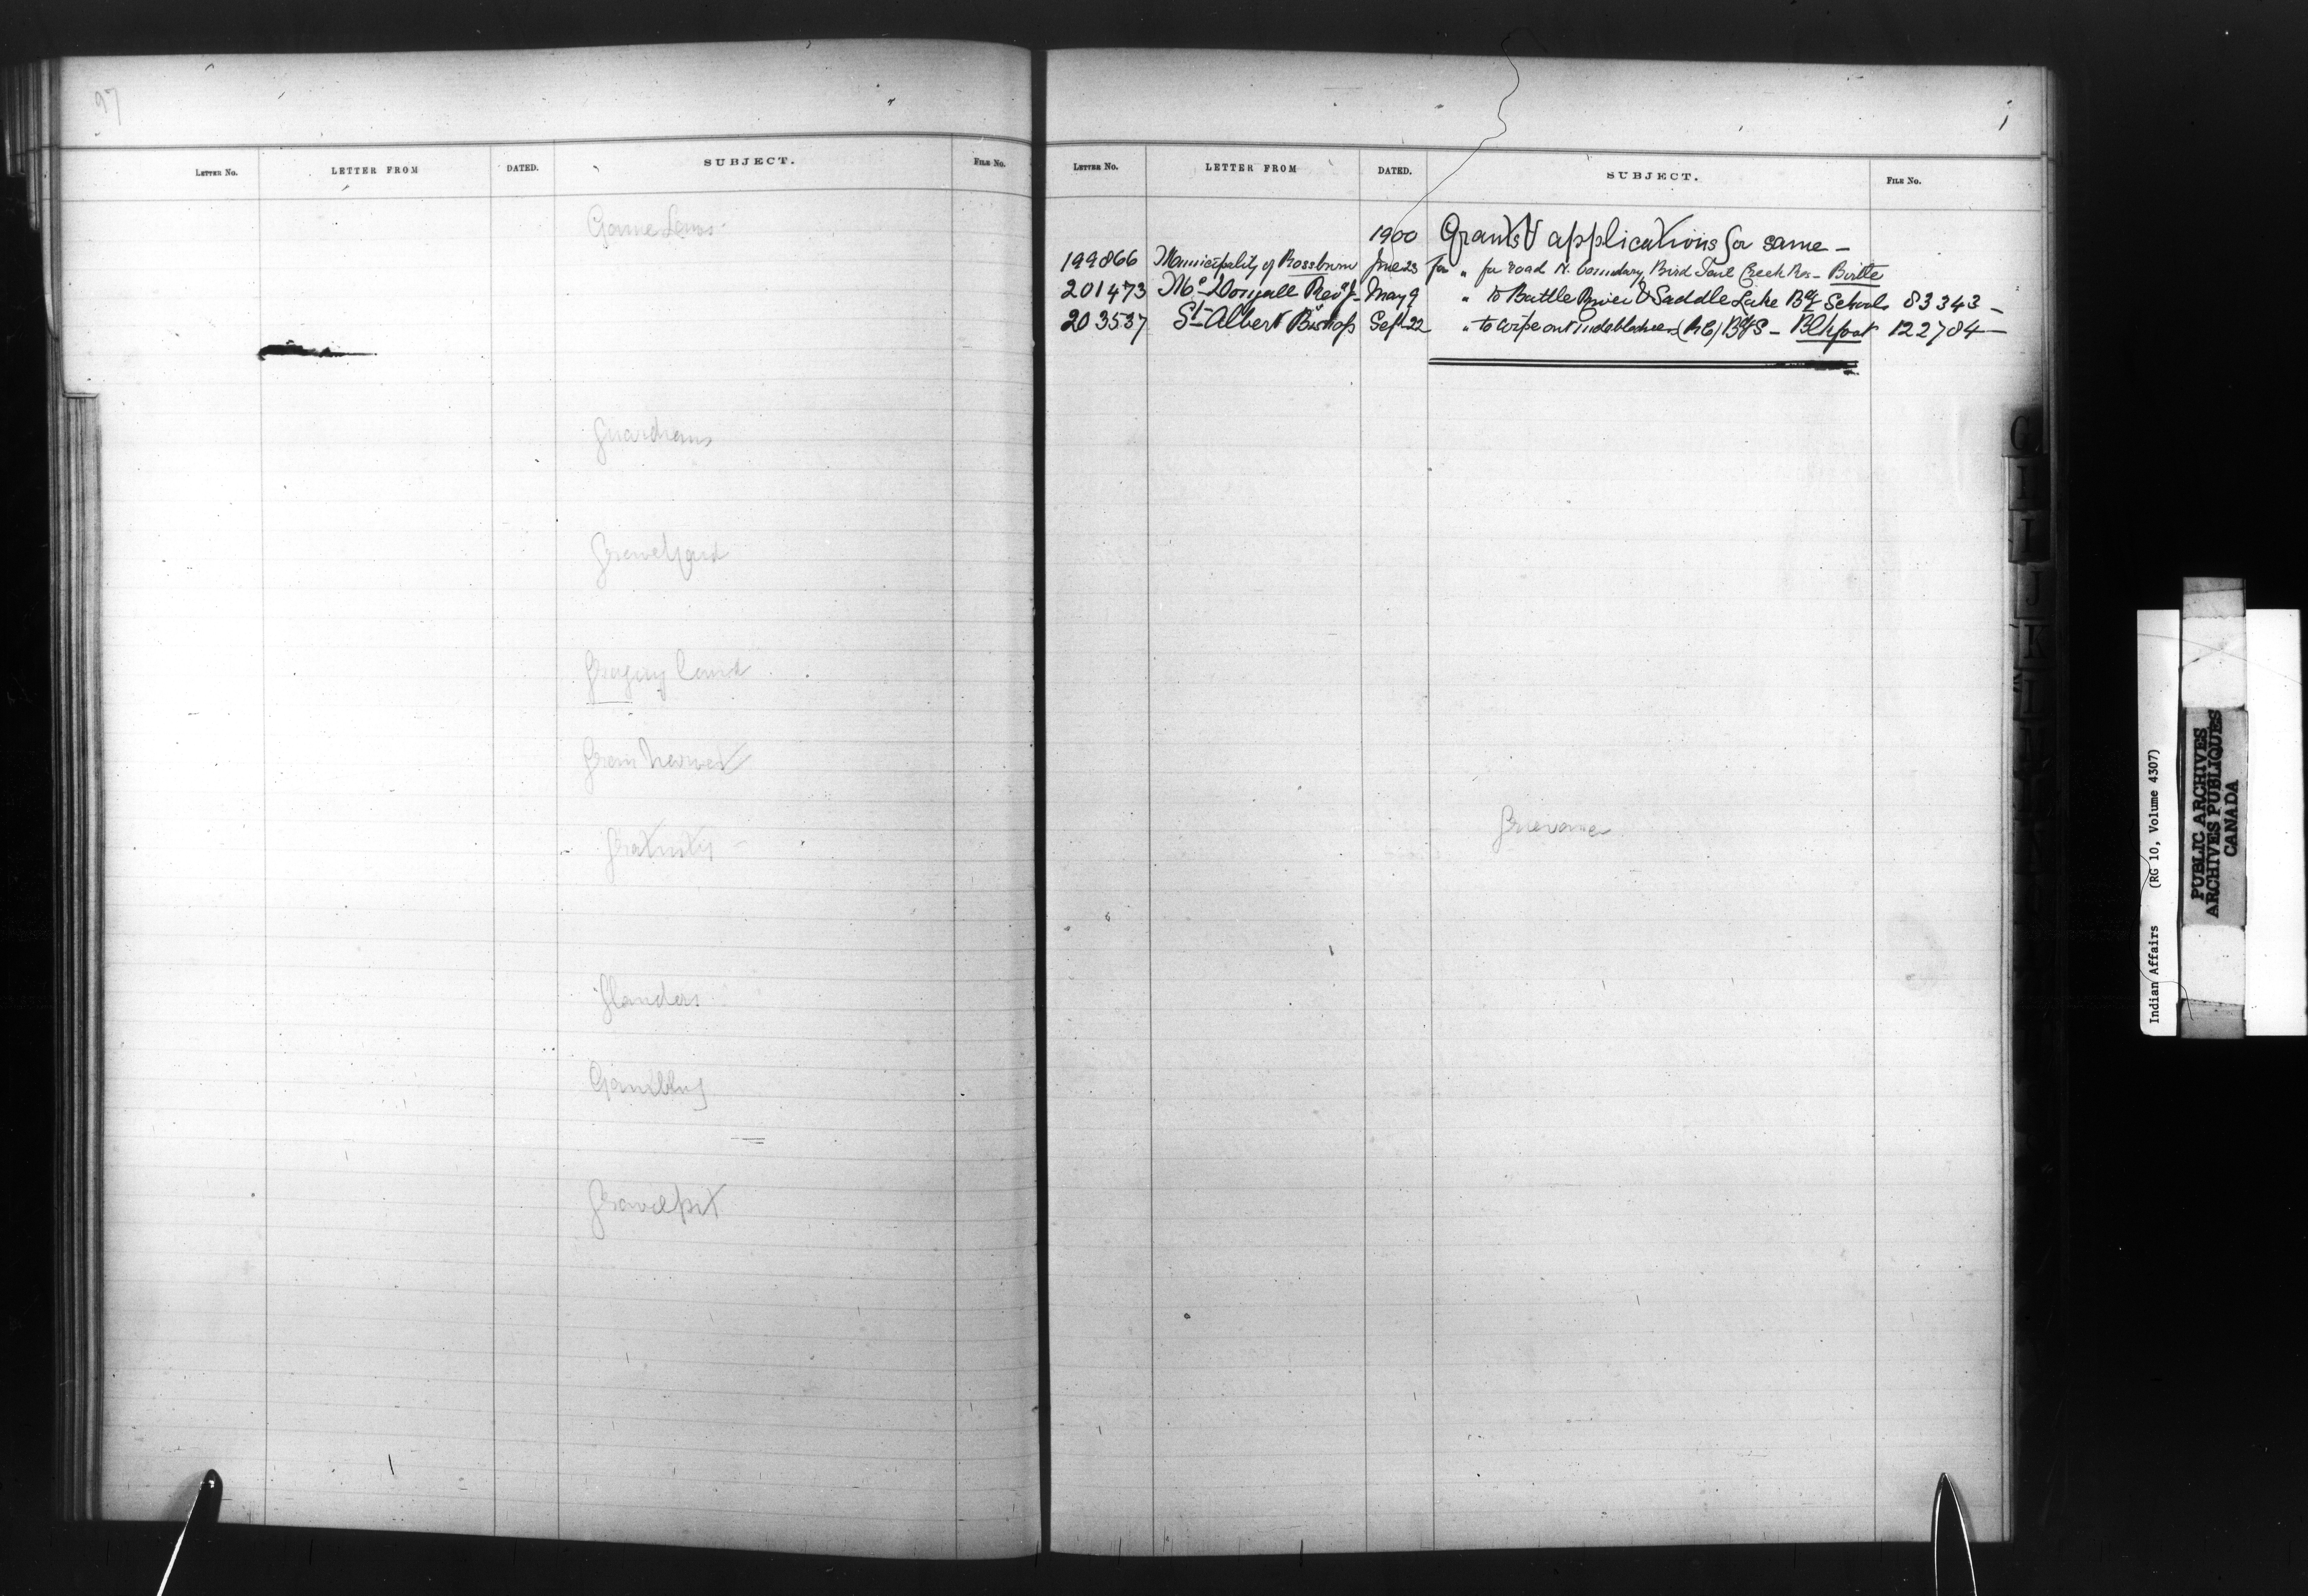 97
LETTER No. LETTER FROM DATED. SUBJECT. FILE No.
Game Laws
Guardians
Graveyard
Gregory Land
Grain harvest
Gratuity
Glanders
Gambling
Gravel pit
LETTER No. LETTER FROM DATED. SUBJECT. FILE No.
1900 Grants & applications for same –
199866 Municipality of Rossburn June 23 for " for road N. boundary Bird Tail Creek Res – Birtle
201473 Mc Dougall Revd J. May 9 " to Battle River & Saddle Lake Bdg Schools 83343 –
203537 St Albert Bishop Sept 22 " to wipe out indebtedness (RC) BdgS – Blkfoot 122784 –
Grievance
G
I
I
J
K
L
Indian Affairs (RG 10, Volume 4307)
PUBLIC ARCHIVES
ARCHIVES PUBLIQUES
CANADA